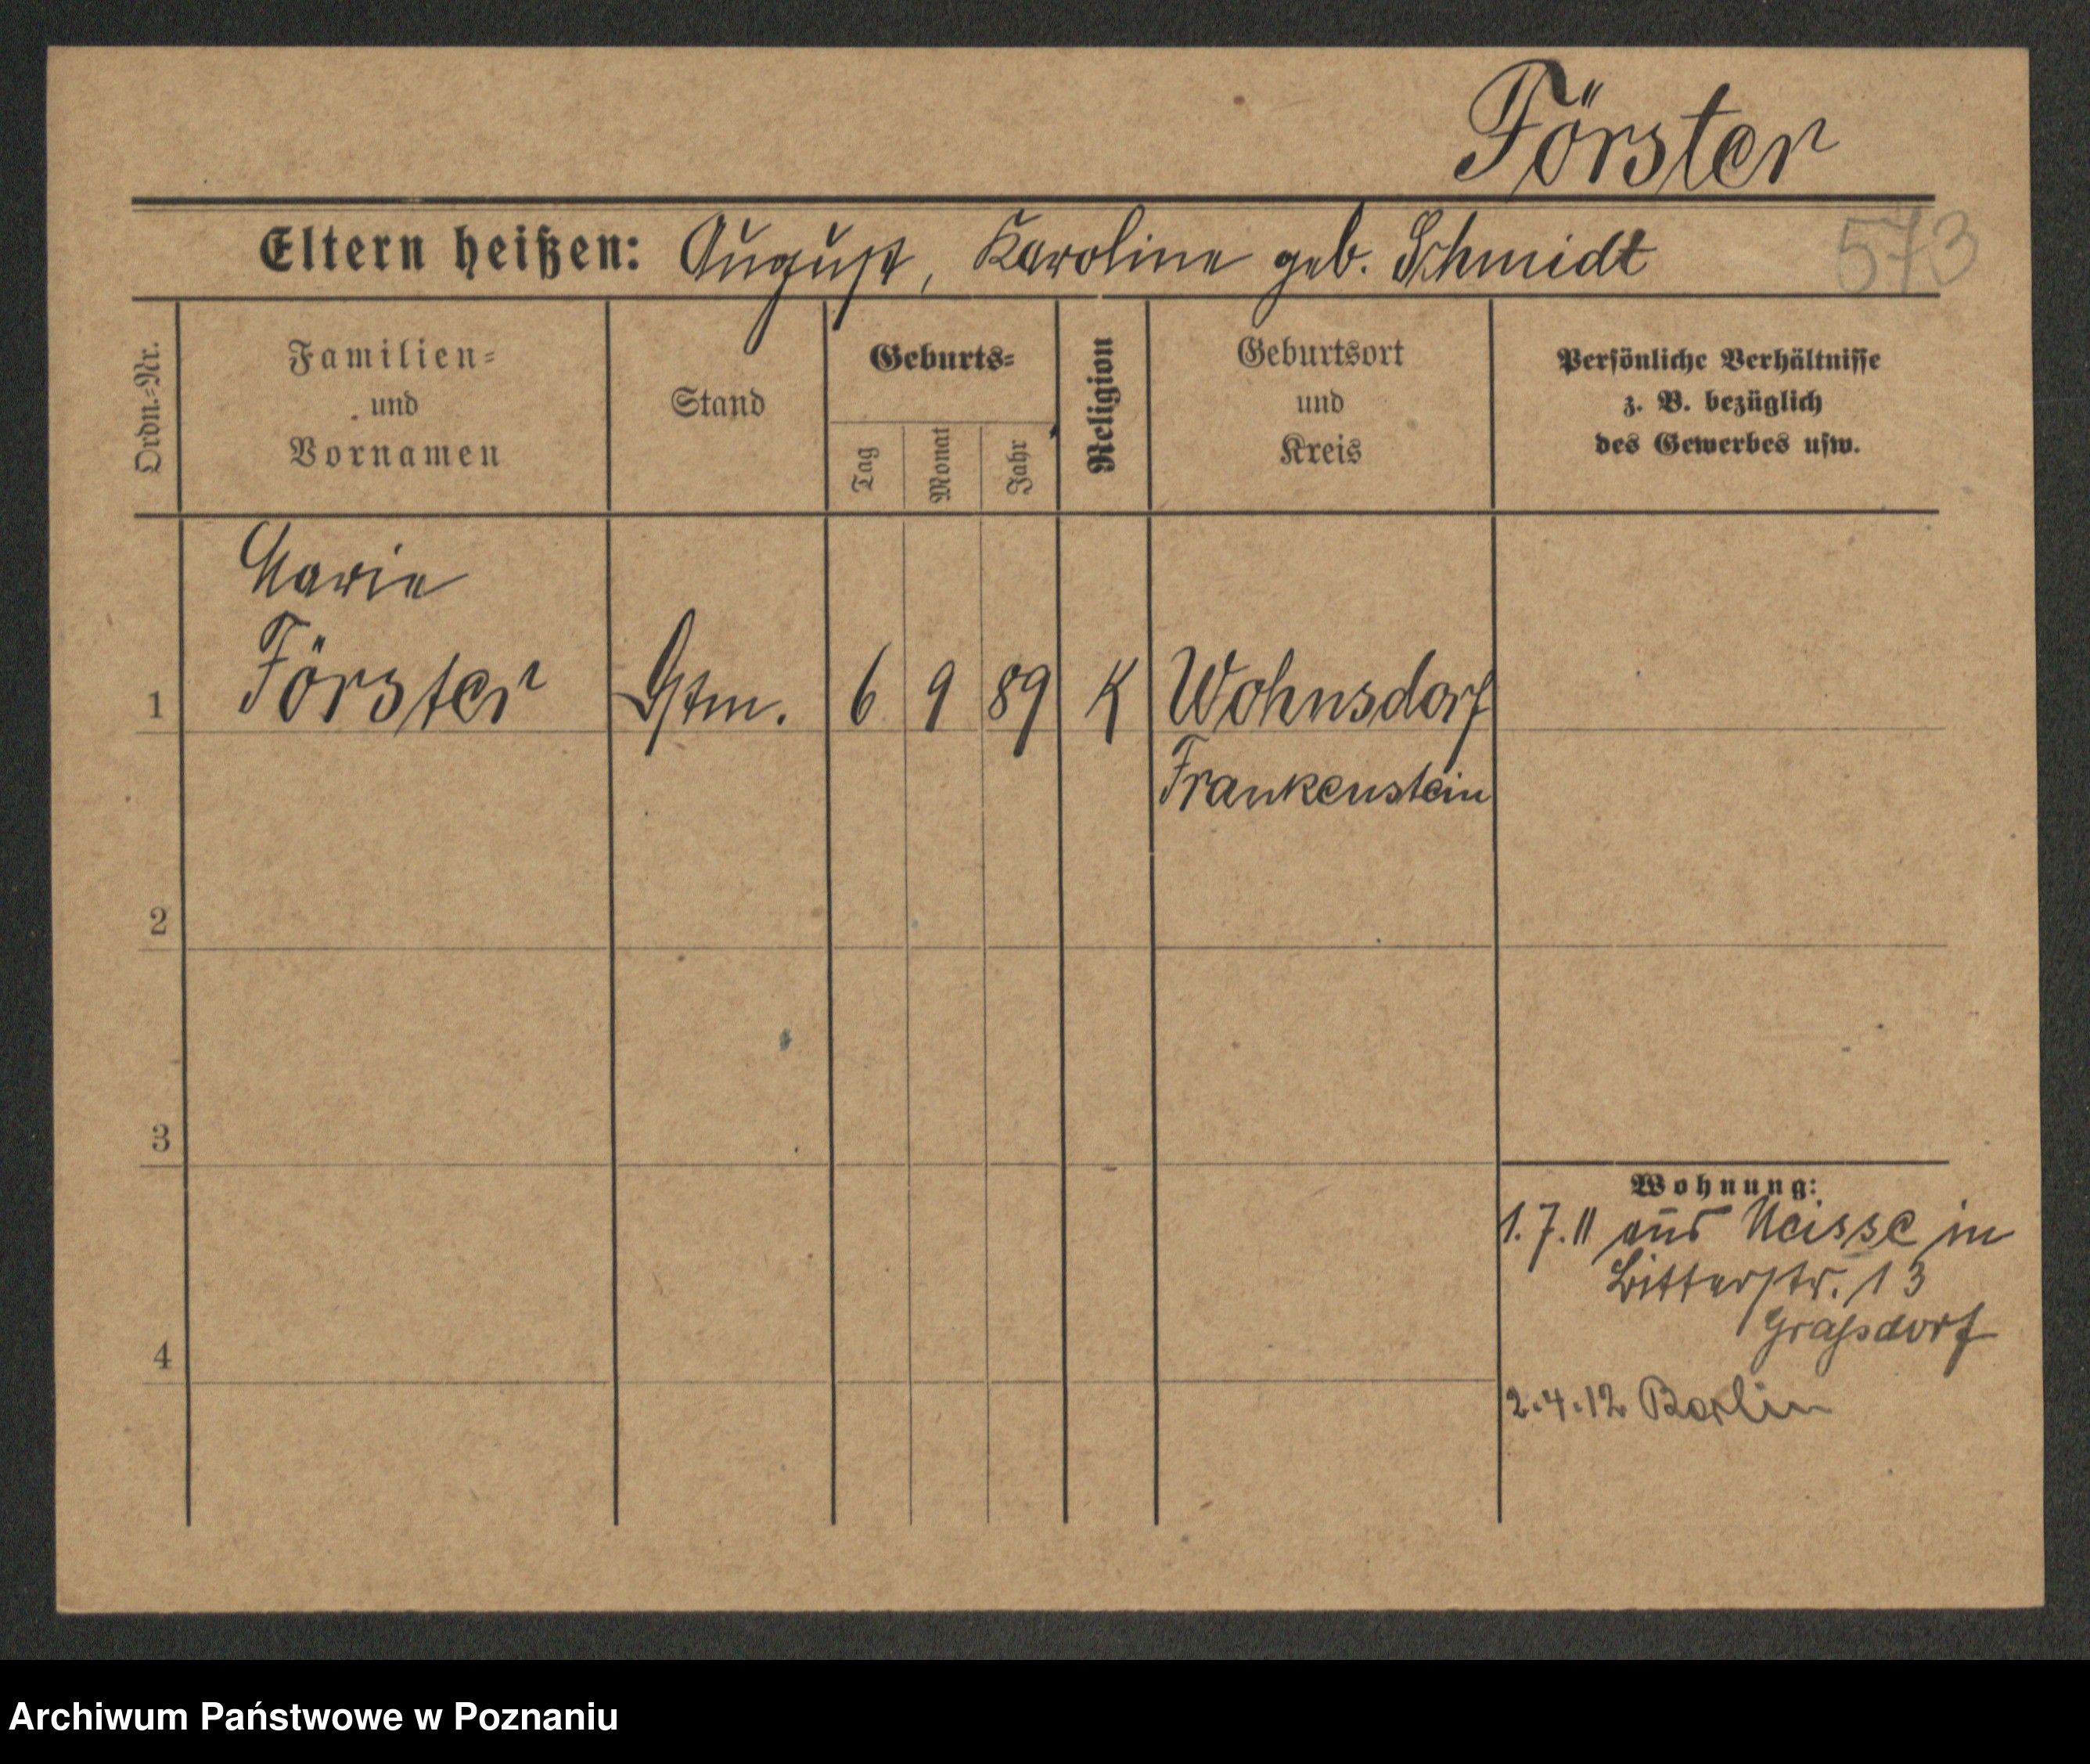 Förster
Eltern heißen: August, Karoline geb. Schmidt
573
Ordn.-Nr.
Familien-
und
Vornamen
Stand
Geburts-
Tag
Monat
Jahr
Religion
Geburtsort
und
Kreis
Persönliche Verhältnisse
z. B. bezüglich
des Gewerbes usw.
Marie
1 Förster 6 9 89 K Wohnsdorf
Frankenstein
2
3
4
Wohnung:
1.7.11 aus Neisse in
Ritterstr. 13
2.4.12 Berlin
Archiwum Państwowe w Poznaniu